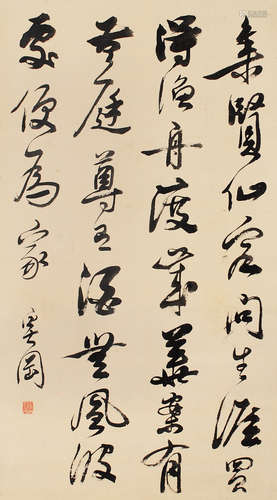 集賢仙客問生涯買
得漁舟渡歲華案有
黃庭尊有酒無風波
處便為家
奚岡